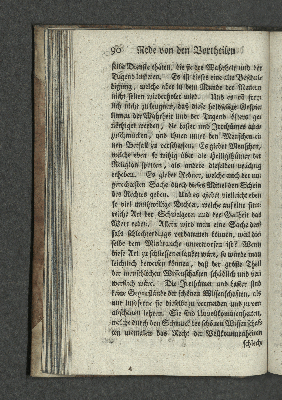 90 Rede von den Vortheilen
selbe Dienste thäten, die sie der Wahrheit und der
Tugend leisteten. Es ist dieses eine alte Beschul-
digung, welche aber in dem Munde der Neuern
nicht selten wiederholet wird. Und es ist frey-
lich nicht zu leugnen, daß diese holdselige Gespie-
linnen der Wahrheit und der Tugend öfters ge-
nöthiget werden, die Laster und Irrthümer aus-
zuschmücken, und ihnen unter den Menschen ei-
nen Beyfall zu verschaffen. Es giebet Menschen,
welche eben so witzig über die Heiligthümer der
Religion spotten, als andere dieselben würdig
erheben. Es giebet Redner, welche auch der un-
gerechtesten Sache durch dieses Mittel den Schein
des Rechtes geben. Und es giebet vielleicht eben
so viel muthwillige Dichter, welche auf eine sinn-
reiche Art der Schwelgerey und der Geilheit das
Wort reden. Allein wird man eine Sache deß-
halb schlechterdings verdammen können, weil die-
selbe dem Misbrauche unterworfen ist? Wenn
diese Art zu schliessen erlaubet wäre, so würde man
leichtlich beweisen können, daß der größte Theil
der menschlichen Wissenschaften schädlich und ver-
werflich wäre. Die Irrthümer und Laster sind
keine Gegenstände der schönen Wissenschaften, als
in so fern sie dieselben zu vermeiden und zu ver-
abscheuen lehren. Sie sind Unvollkommenheiten,
welche durch den Schmuck der schönen Wissenschaf-
ten niemahls das Recht der Vollkommenheiten
schlech-